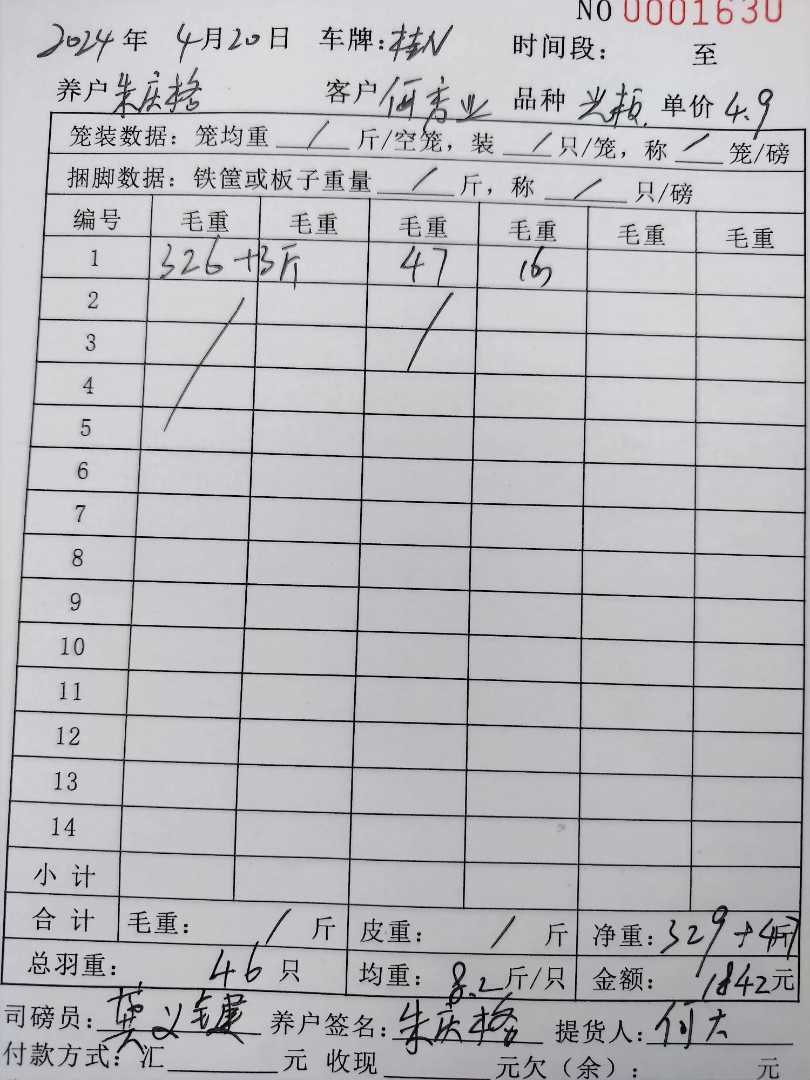 NO 0001630
2024年 4月20日 车牌:桂N 时间段: 至
养户 朱庆格 客户 何秀业 品种 单价 4.9
笼装数据: 笼均重 / 斤/空笼, 装 / 只/笼, 称 / 笼/磅
捆脚数据: 铁筐或板子重量 / 斤, 称 / 只/磅
编号 毛重 毛重 毛重 毛重 毛重 毛重
1 326+3斤 47
2
3
4
5
6
7
8
9
10
11
12
13
14
小计
合计 毛重: / 斤 皮重: / 斤 净重: 329+4斤
总羽重: 46 只 均重: 8.2 斤/只 金额: 1842元
司磅员: 莫义键 养户签名: 朱庆格 提货人: 何大
付款方式: 汇 元 收现 元欠(余): 元